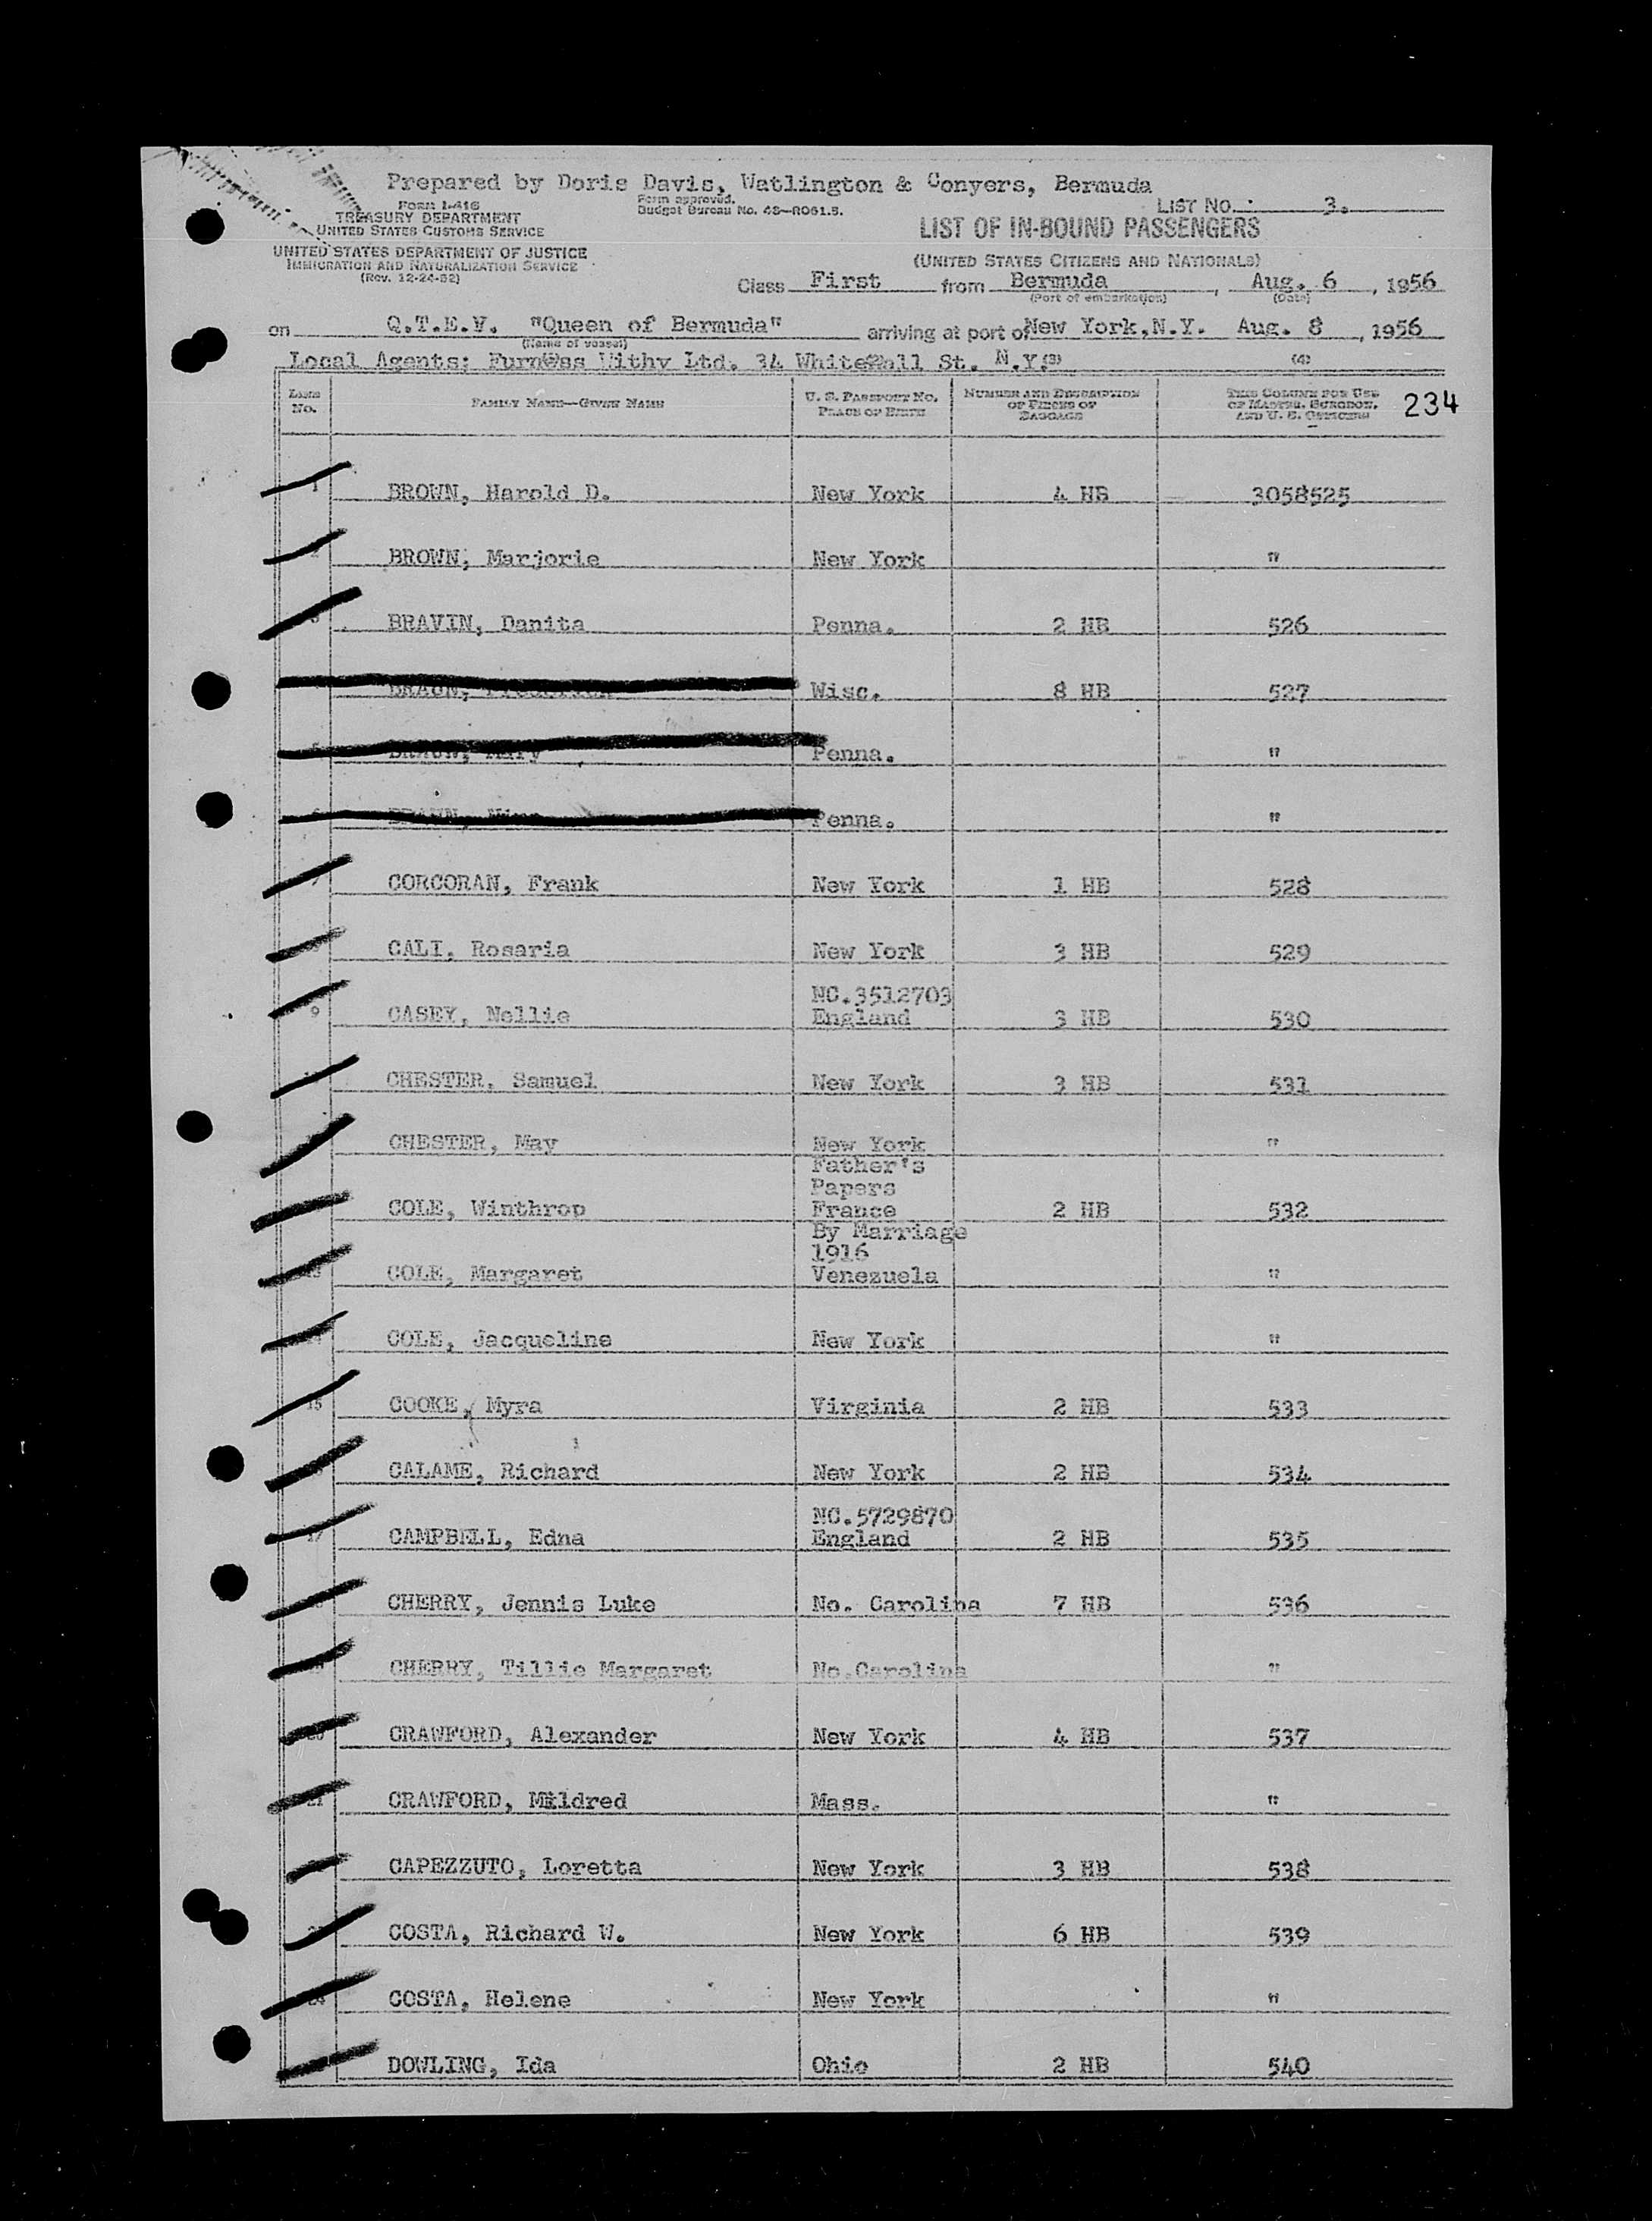 Prepared by Doris Davis, Watlington & Conyers, Bermuda
Form I-416
TREASURY DEPARTMENT
UNITED STATES CUSTOMS SERVICE
UNITED STATES DEPARTMENT OF JUSTICE
IMMIGRATION AND NATURALIZATION SERVICE
(Rev. 12-24-52)
Form approved.
Budget Bureau No. 43-R061.5.
LIST NO. : 3.
LIST OF IN-BOUND PASSENGERS
(UNITED STATES CITIZENS AND NATIONALS)
Class First from Bermuda, Aug. 6, 1956
(Port of embarkation) (Date)
on Q.T.E.V. "Queen of Bermuda" arriving at port of New York, N.Y. Aug. 8, 1956
(Name of vessel)
Local Agents: Furness Withy Ltd. 34 Whitehall St. N.Y. (3) (4)
LINE No. FAMILY NAME—GIVEN NAME U. S. PASSPORT NO. PLACE OF BIRTH NUMBER AND DESCRIPTION OF PIECES OF BAGGAGE THIS COLUMN FOR USE OF MASTER, SURGEON, AND U. S. OFFICERS 234
1 BROWN, Harold D. New York 4 HB 3058525
BROWN, Marjorie New York "
BRAVIN, Danita Penna. 2 HB 526
BRAUN, Wisc. 8 HB 527
5 BRAUN, Mary Penna. "
6 BRAUN, Penna. "
7 CORCORAN, Frank New York 1 HB 528
CALI, Rosaria New York 3 HB 529
9 CASEY, Nellie NC.3512703 England 3 HB 530
CHESTER, Samuel New York 3 HB 531
CHESTER, May New York "
COLE, Winthrop Father's Papers France 2 HB 532
13 COLE, Margaret By Marriage 1916 Venezuela "
COLE, Jacqueline New York "
15 COOKE, Myra Virginia 2 HB 533
CALAME, Richard New York 2 HB 534
17 CAMPBELL, Edna NC.5729870 England 2 HB 535
CHERRY, Jennis Luke No. Carolina 7 HB 536
CHERRY, Tillie Margaret No.Carolina "
20 CRAWFORD, Alexander New York 4 HB 537
21 CRAWFORD, Mildred Mass. "
CAPEZZUTO, Loretta New York 3 HB 538
COSTA, Richard W. New York 6 HB 539
24 COSTA, Helene New York "
DOWLING, Ida Ohio 2 HB 540